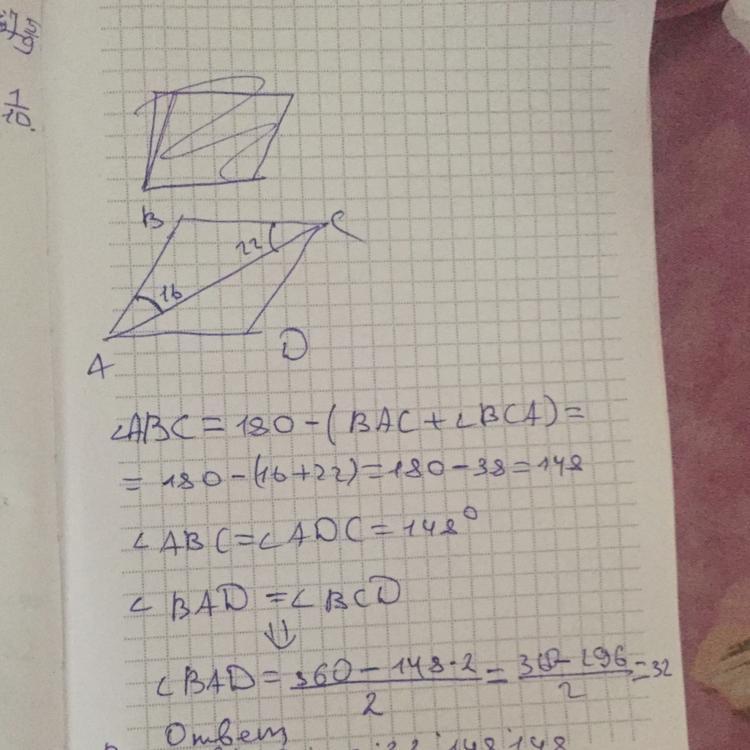 1
10.
B
C
22
16
A
D
∠ABC = 180 - ( BAC + ∠BCA) =
= 180 - (16+22) = 180 - 38 = 148
∠ ABC = ∠ADC = 148°
∠ BAD = ∠ BCD
⇓
∠BAD = 360 - 148·2 / 2 = 360 - 296 / 2 = 32
Ответ
148 148